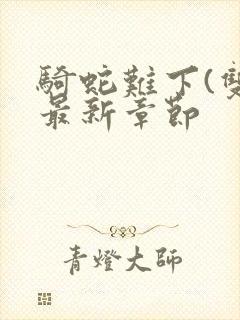 騎蛇難下(雙
最新章節
青燈大師